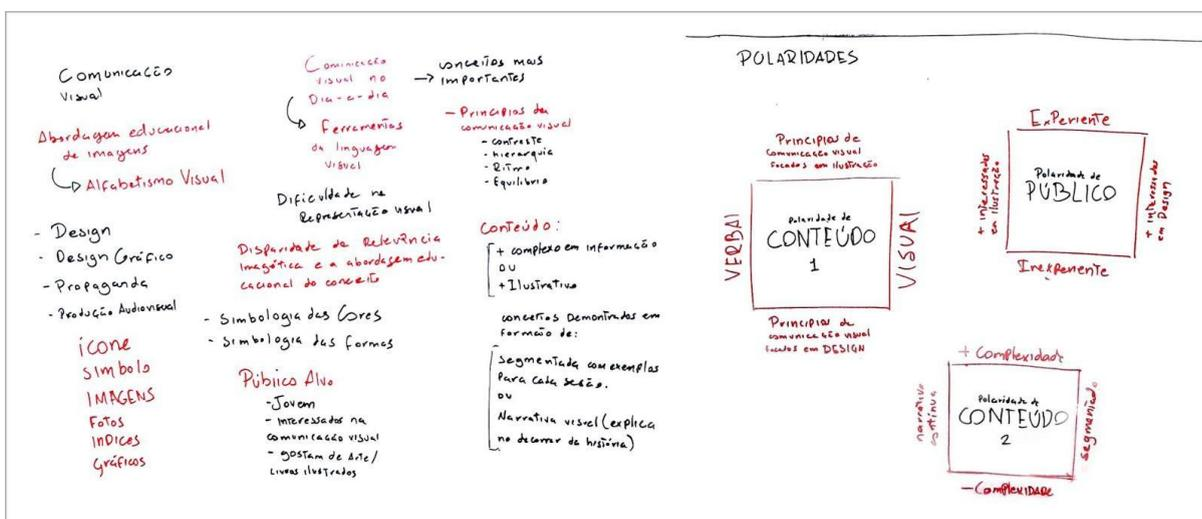 Comunicação
Visual
Abordagem educacional
de imagens
Alfabetismo Visual
- Design
- Design Gráfico
- Propaganda
- Produção Audiovisual
ícone
símbolo
IMAGENS
Fotos
INDICES
Gráficos
Cominicação
visual no
Dia-a-dia
Ferramentas
da linguagem
visual
Dificuldade na
Representação visual
Disparidade da Relevância
Imagética e a abordagem edu-
cacional do conceito
- Simbologia das Cores
- Simbologia das formas
Público Alvo
- Jovem
- Interessados na
comunicação visual
- gostam de Arte/
Livros ilustrados
conceitos mais
importantes
- Princípios da
comunicação visual
- contraste
- hierarquia
- Ritmo
- Equilíbrio
Conteúdo:
+ complexo em informação
ou
+ Ilustrativo
conceitos Demontrados em
formato de:
Segmentada com exemplos
Para cada sessão.
ou
Narrativa visual (explica
no decorrer da história)
POLARIDADES
Princípios de
comunicação visual
focados em ilustração
VERBAL
Polaridade de
CONTEÚDO
1
VISUAL
Princípios de
comunicação visual
focados em DESIGN
Experiente
+ interessados
em ilustração
Polaridade de
PÚBLICO
+ interessados
em Design
Inexperiente
+ Complexidade
narrativa
contínua
Polaridade de
CONTEÚDO
2
segmentado
- Complexidade